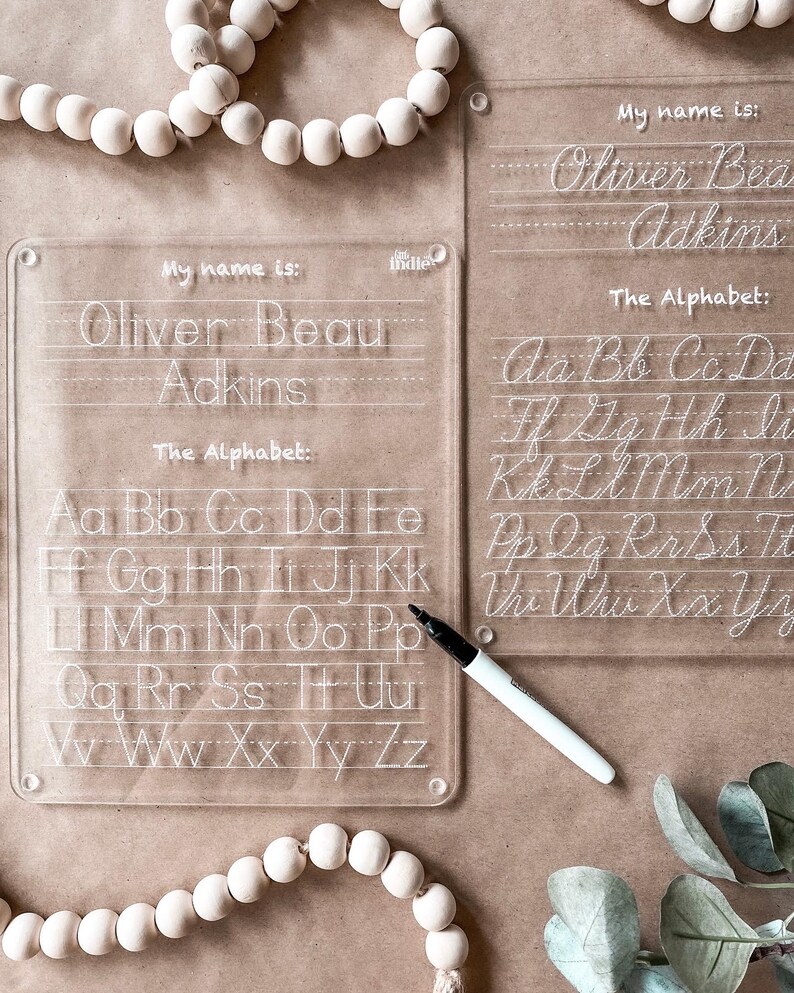 My name is:
little
indie
Oliver Beau
Adkins
The Alphabet:
Aa Bb Cc Dd Ee
Ff Gg Hh Ii Jj Kk
Ll Mm Nn Oo Pp
Qq Rr Ss Tt Uu
Vv Ww Xx Yy Zz
My name is:
Oliver Bea
Adkins
The Alphabet:
Aa Bb Cc Dd
Ff Gg Hh Ii
Kk Ll Mm N
Pp Qq Rr Ss Tt
Vv Ww Xx Yy